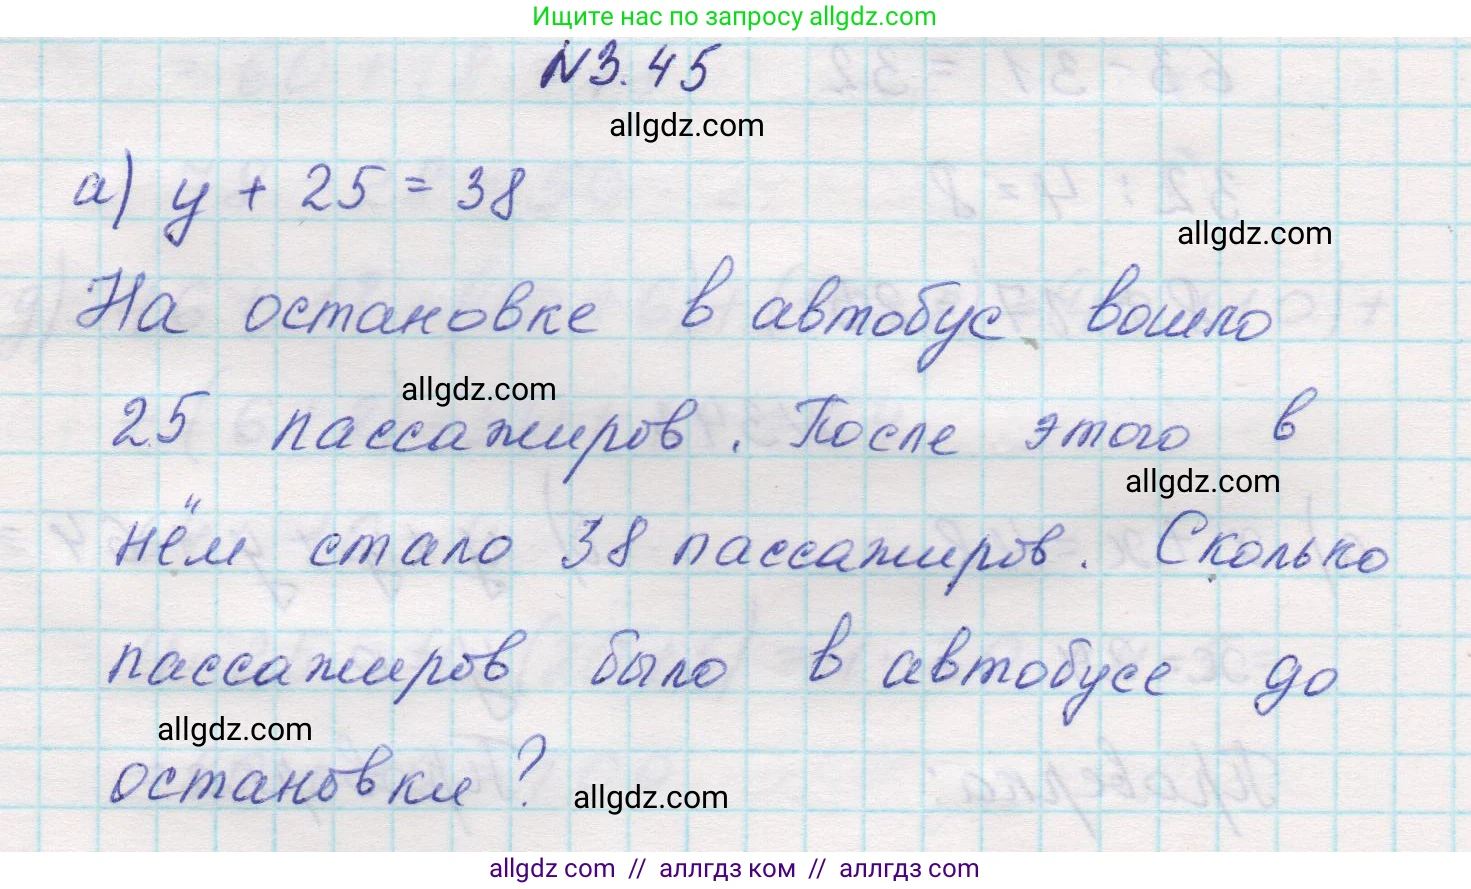 Ищите нас по запросу allgdz.com
№3.45
allgdz.com
а) y + 25 = 38
allgdz.com
На остановке в автобус вошло
allgdz.com
25 пассажиров. После этого в
allgdz.com
нём стало 38 пассажиров. Сколько
пассажиров было в автобусе до
allgdz.com
остановки?
allgdz.com
allgdz com // аллгдз ком // аллгдз com